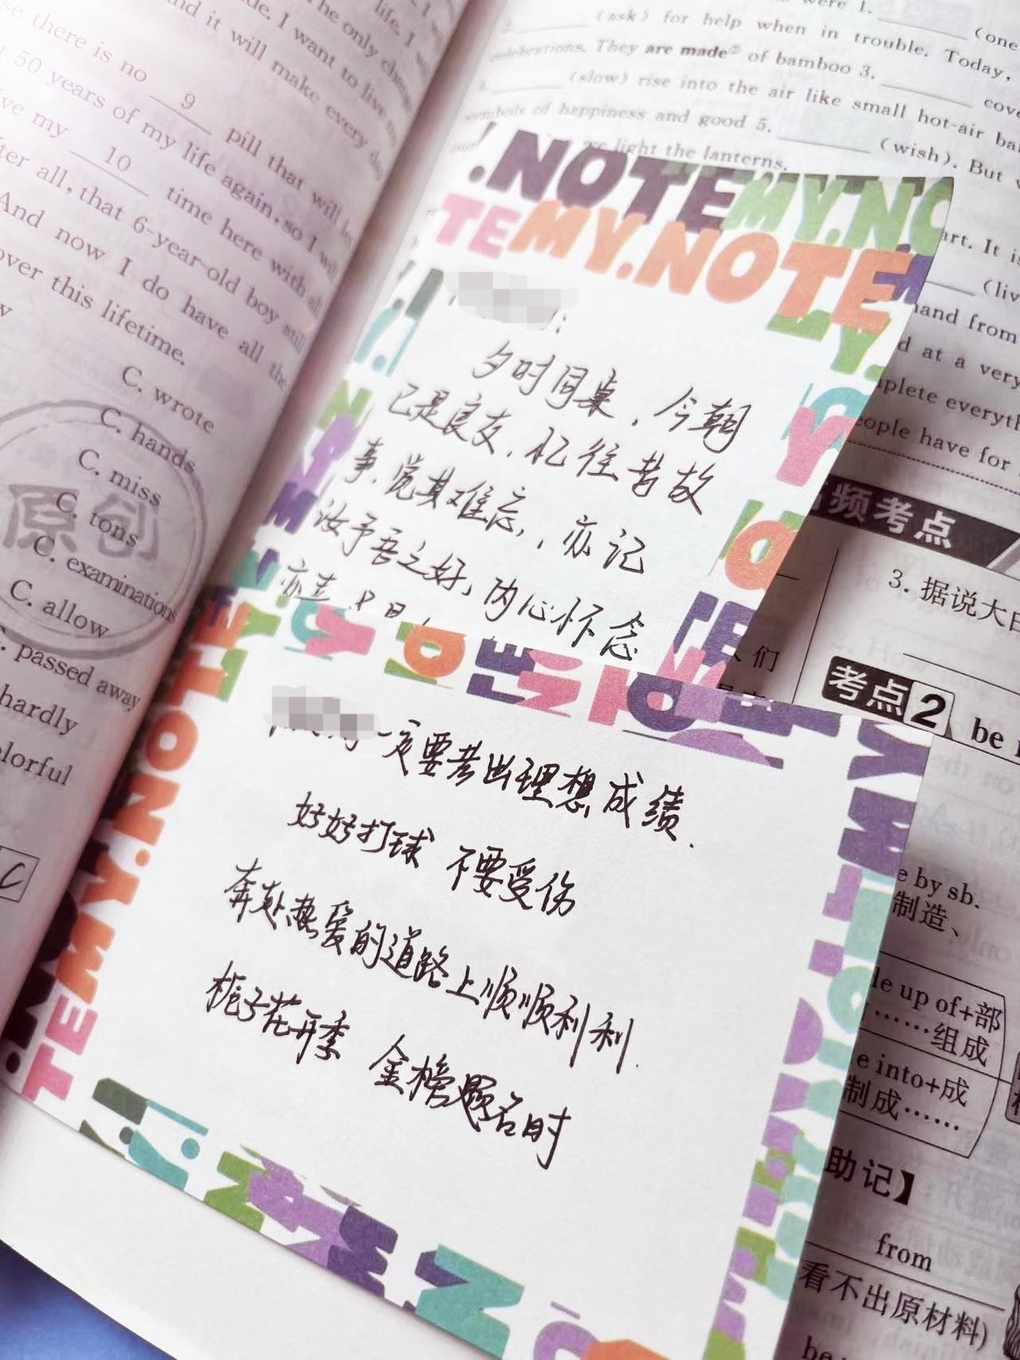 9
pill that will
50 years of my life again, so I will
10
time here with all
after all, that 6-year-old boy still
And now I do have all the
over this lifetime.
C. wrote
C. hands
C. miss
C. tons
C. examinations
C. allow
C. passed away
hardly
原创
C
were 1.
(ask) for help when in trouble. Today,
celebrations. They are made of bamboo 3.
(slow) rise into the air like small hot-air
symbols of happiness and good 5.
(wish). But
light the lanterns.
art. It is
hand from
at a very
people have for
.NOTEMY.NO
TEMY.NOTE
夕时同桌，今朝
已是良友，忆往昔故
事，觉其难忘，亦记
汝予吾之好，内心怀念
一定要考出理想成绩.
好好打球 不要受伤
奔赴热爱的道路上顺顺利利.
栀子花开季 金榜题名时
TEMY.NOTE
高频考点
3. 据说大
们
考点2
be
by sb.
制造、
up of+部
……组成
into+成
制成……
助记】
from
看不出原材料)